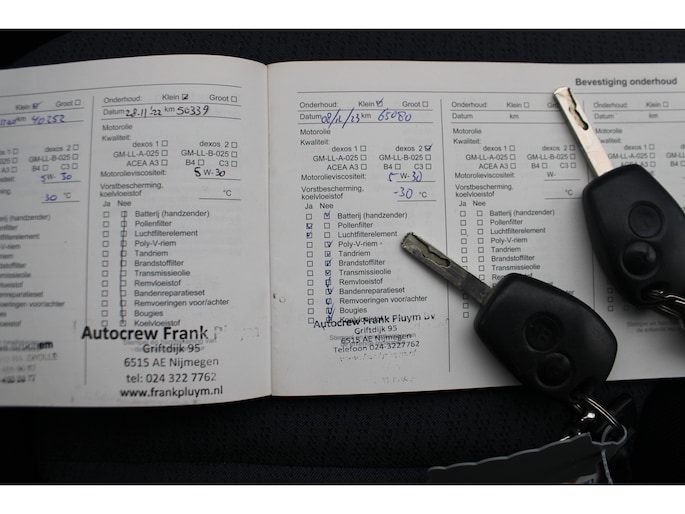 Bevestiging onderhoud
Klein ☑ Groot ☐
km 40252
A-025 ☐ GM-LL-B-025 ☐
5 W-30
30 °C
Onderhoud: Klein ☑ Groot ☐
Datum 28-11-'22 km 50339
Motorolie
Kwaliteit:
dexos 1 ☐ dexos 2 ☐
GM-LL-A-025 ☐ GM-LL-B-025 ☐
ACEA A3 ☐ B4 ☐ C3 ☐
Motorolieviscositeit: 5 W-30
Vorstbescherming, koelvloeistof °C
Ja Nee
Batterij (handzender)
Pollenfilter
Luchtfilterelement
Poly-V-riem
Tandriem
Brandstoffilter
Transmissieolie
Remvloeistof
Bandenreparatieset
Remvoeringen voor/achter
Bougies
Koelvloeistof
Autocrew Frank
Griftdijk 95
6515 AE Nijmegen
tel: 024 322 7762
www.frankpluym.nl
Onderhoud: Klein ☑ Groot ☐
Datum 08/12/23 km 65080
Motorolie
Kwaliteit:
dexos 1 ☐ dexos 2 ☑
GM-LL-A-025 ☐ GM-LL-B-025 ☐
ACEA A3 ☐ B4 ☐ C3 ☐
Motorolieviscositeit: 5 W-30
Vorstbescherming,
koelvloeistof -30 °C
Ja Nee
Batterij (handzender)
Pollenfilter
Luchtfilterelement
Poly-V-riem
Tandriem
Brandstoffilter
Transmissieolie
Remvloeistof
Bandenreparatieset
Remvoeringen voor/achter
Bougies
Autocrew Frank Pluym BV
Griftdijk 95
6515 AE Nijmegen
Telefoon 024-3227762
Onderhoud: Klein ☐ Groot ☐
Datum km
Motorolie
Kwaliteit:
dexos 1 ☐
GM-LL-A-025 ☐
ACEA A3 ☐
Motorolieviscositeit:
Vorstbescherming,
koelvloeistof
Ja Nee
Batterij
Klein ☐ Groot ☐
km
dexos 1 ☐ dexos 2 ☐
GM-LL-B-025 ☐
B4 ☐ C3 ☐
W-
°C